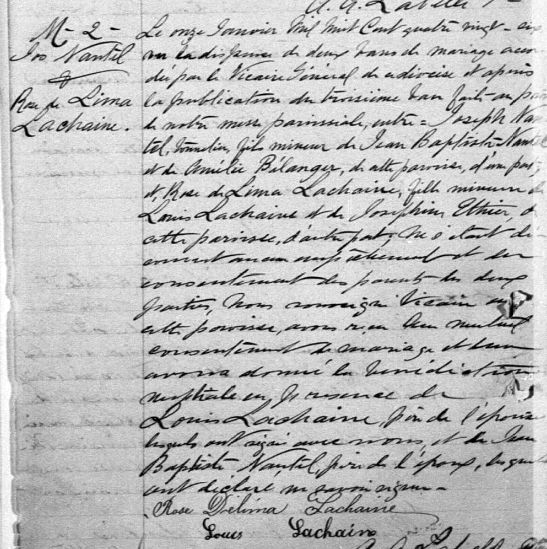 A. A. Labelle
M - 2 -
Jos Nantel
&
Rose de Lima
Lachaine.
Le onze Janvier mil huit cent quatre vingt-six
vu la dispense de deux bans de mariage accor
dée par le Vicaire Général de ce diocèse et après
la publication du troisième ban fait au prône
de notre messe paroissiale, entre Joseph Nan
tel, fils mineur de Jean Baptiste Nantel
et de Amélie Bélanger, de cette paroisse, d'une part,
et Rose de Lima Lachaine, fille mineure de
Louis Lachaine et de Josephine Ethier, de
cette paroisse, d'autre part, ne s'étant dé
couvert aucun empêchement et du
consentement des parents des deux
parties, Nous soussigné Vicaire de
cette paroisse, avons reçu leur mutuel
consentement de mariage et leur
avons donné la bénédiction
nuptiale en présence de
Louis Lachaine, père de l'épouse
lesquels ont signé avec nous, et de Jean
Baptiste Nantel, père de l'époux, lesquels
ont déclaré ne savoir signer -
Rose Délima Lachaine
Louis Lachaine